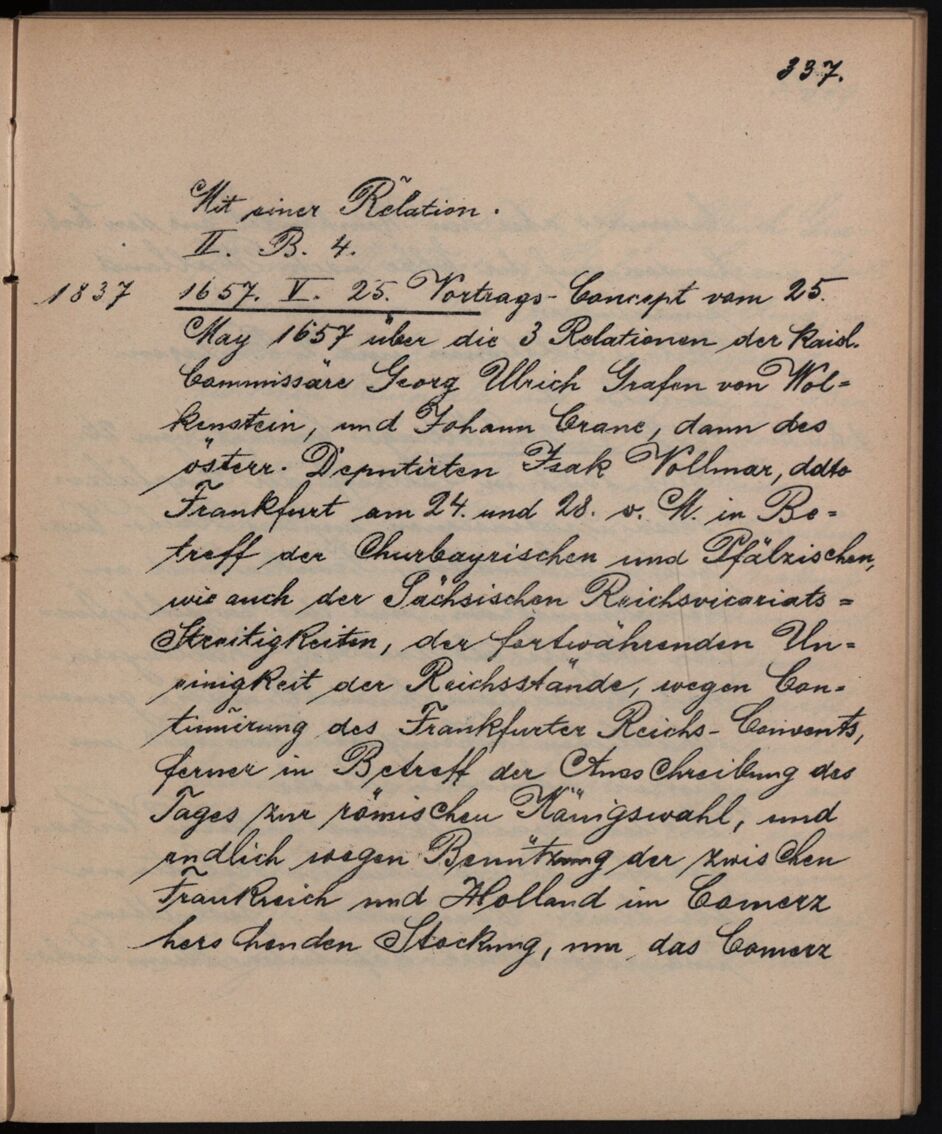 337.
Mit einer Relation.
II. B. 4.
1837 1657. V. 25. Vortrags-Concept vom 25.
May 1657 über die 3 Relationen der kaisl.
Commissäre Georg Ulrich Grafen von Wol=
kenstein, und Johann Crane, dann des
österr. Deputirten Isak Vollmar, ddto
Frankfurt am 24. und 28. v. M. in Be=
treff der Churbayrischen und Pfälzischen,
wie auch der Sächsischen Reichsvicariats=
Streitigkeiten, der fortwährenden Un=
einigkeit der Reichsstände, wegen Con=
tinuirung des Frankfurter Reichs-Convents,
ferner in Betreff der Ausschreibung des
Tages zur römischen Königswahl, und
endlich wegen Benützung der zwischen
Frankreich und Holland im Comerz
herschenden Stockung, um das Comerz